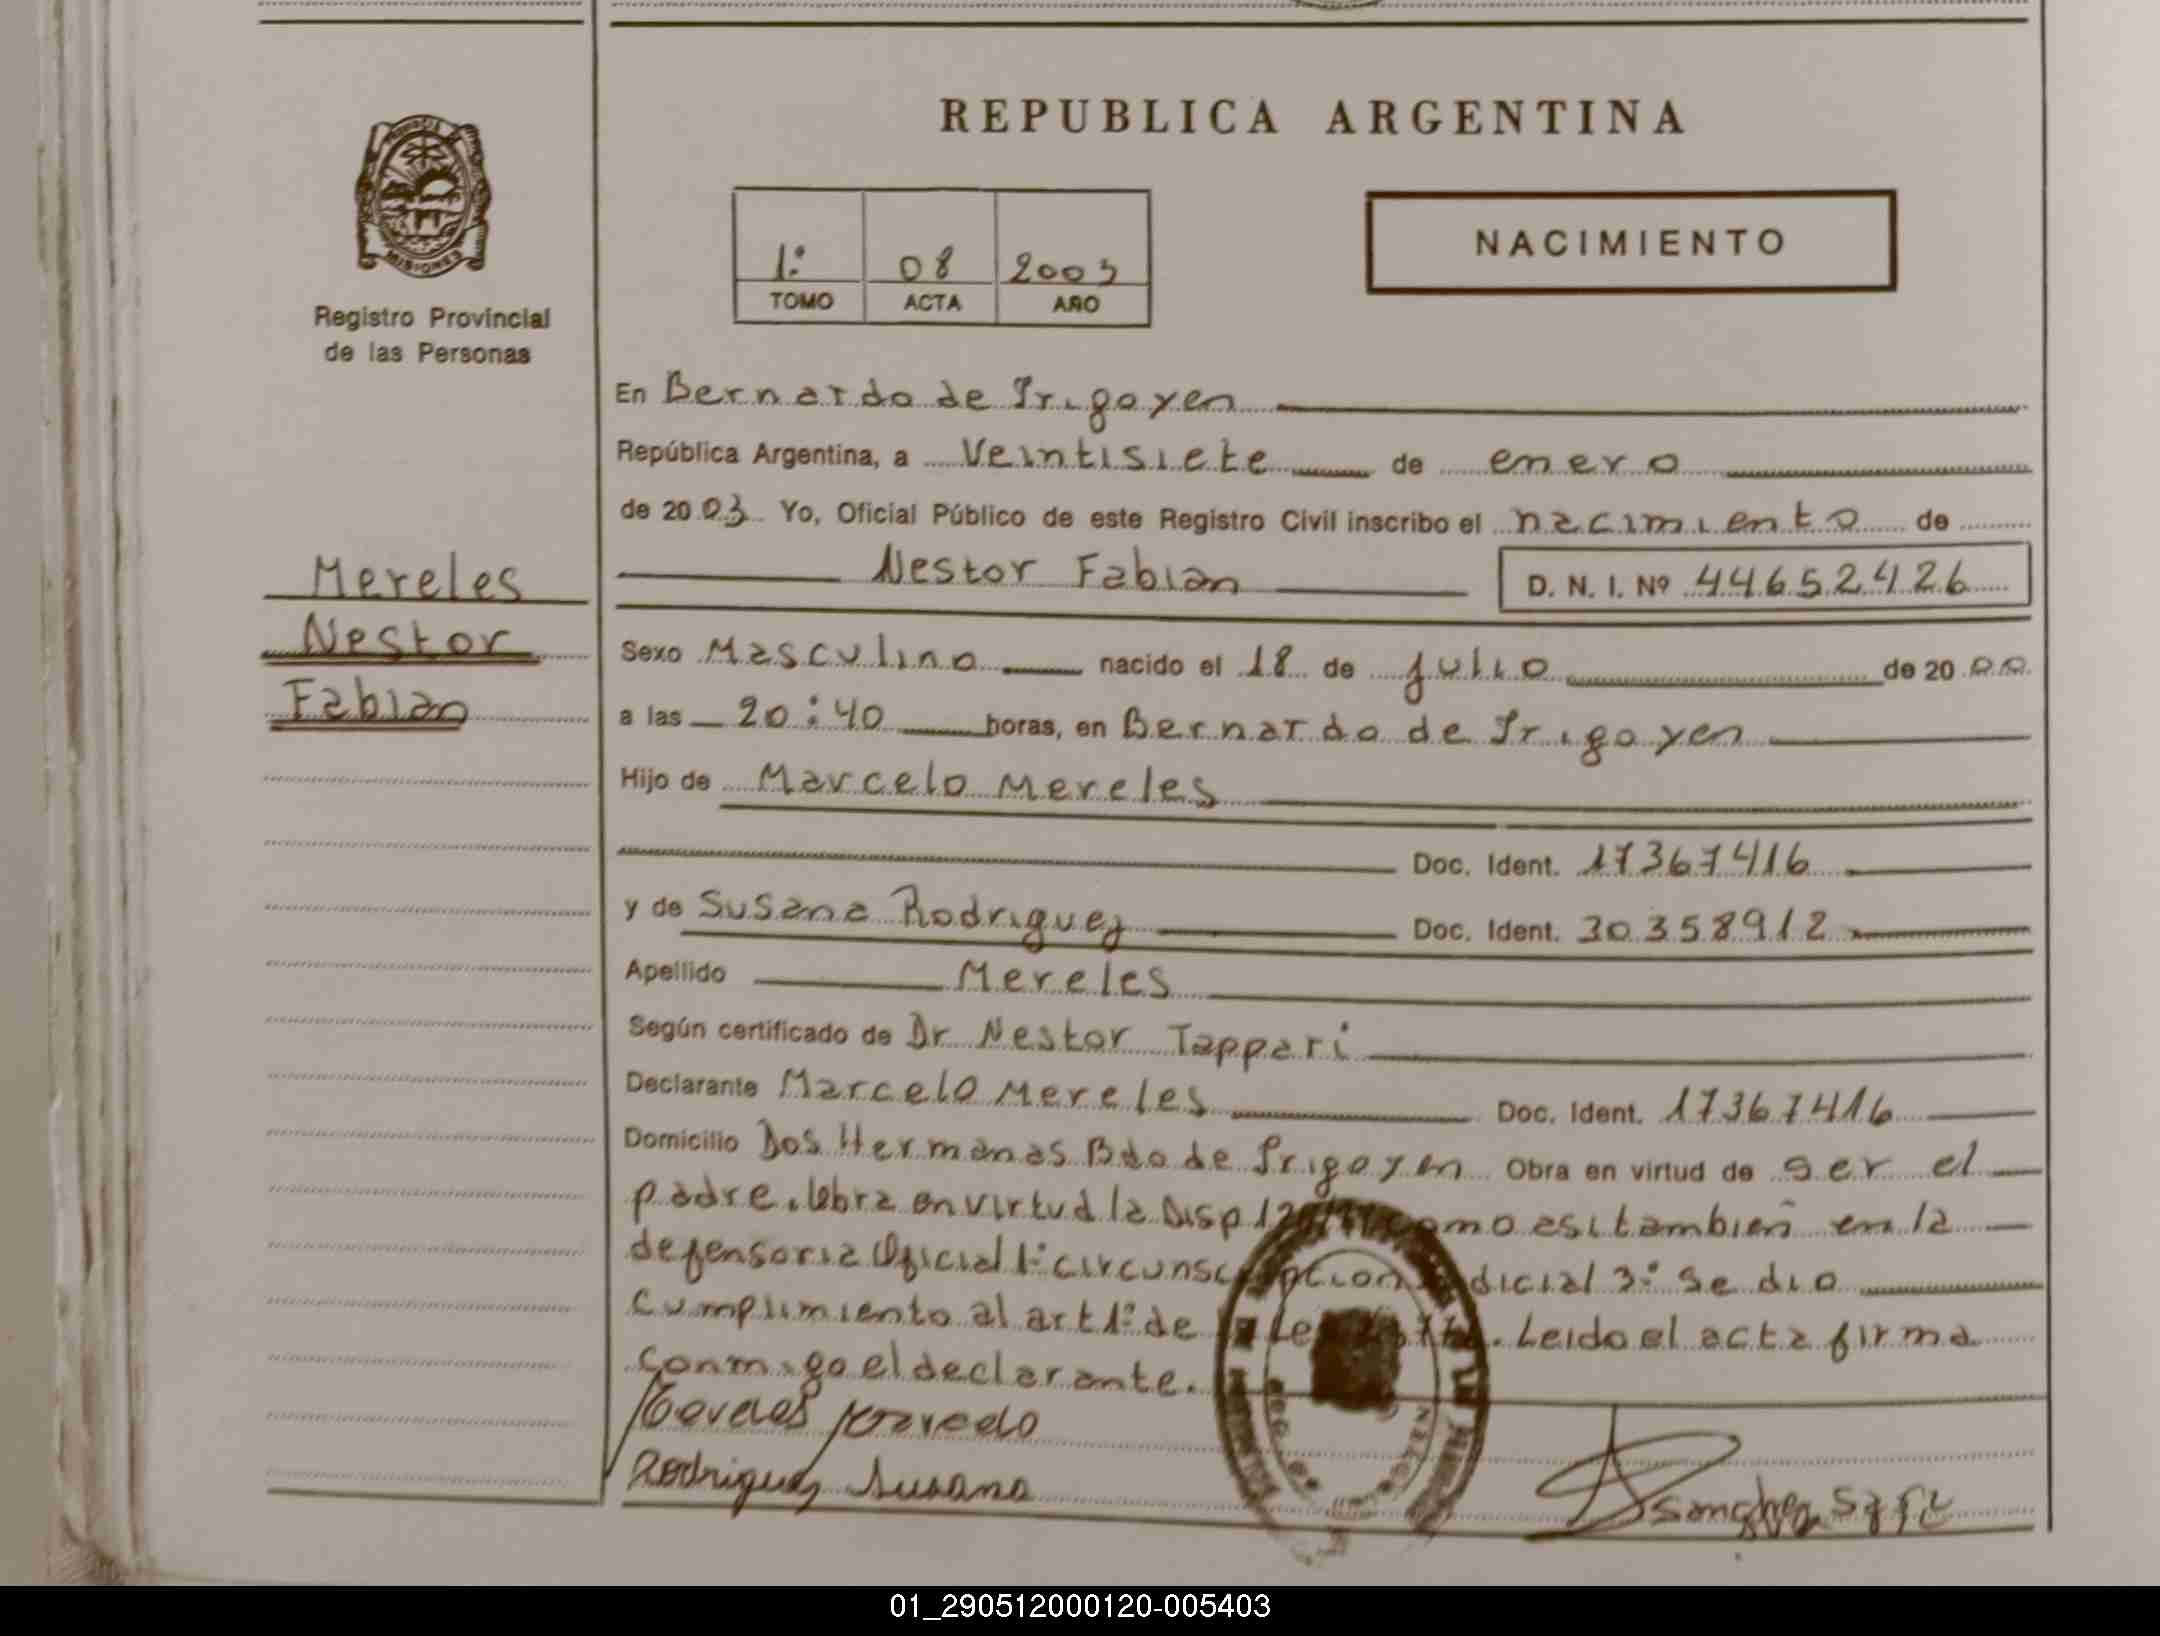 REPUBLICA ARGENTINA
PROVINCIA
MISIONES
Registro Provincial
de las Personas
1º 08 2003
TOMO ACTA AÑO
NACIMIENTO
En Bernardo de Irigoyen
República Argentina, a Veintisiete de enero
de 2003 Yo, Oficial Público de este Registro Civil inscribo el nacimiento de
Nestor Fabian D. N. I. Nº 44652426
Mereles
Nestor
Fabian
Sexo Masculino nacido el 18 de julio de 2000
a las 20:40 horas, en Bernardo de Irigoyen
Hijo de Marcelo Mereles
Doc. Ident. 17367416
y de Susana Rodriguez Doc. Ident. 30358912
Apellido Mereles
Según certificado de Dr Nestor Tappari
Declarante Marcelo Mereles Doc. Ident. 17367416
Domicilio Dos Hermanas Bdo de Irigoyen Obra en virtud de ser el
padre. Obra en virtud la Disp como asi tambien en la
defensoria Oficial 1º circunscripcion Judicial 3º Se dio
cumplimiento al art 1º de la Ley . Leido el acta firma
conmigo el declarante.
Mereles Marcelo
Rodriguez Susana
01_290512000120-005403